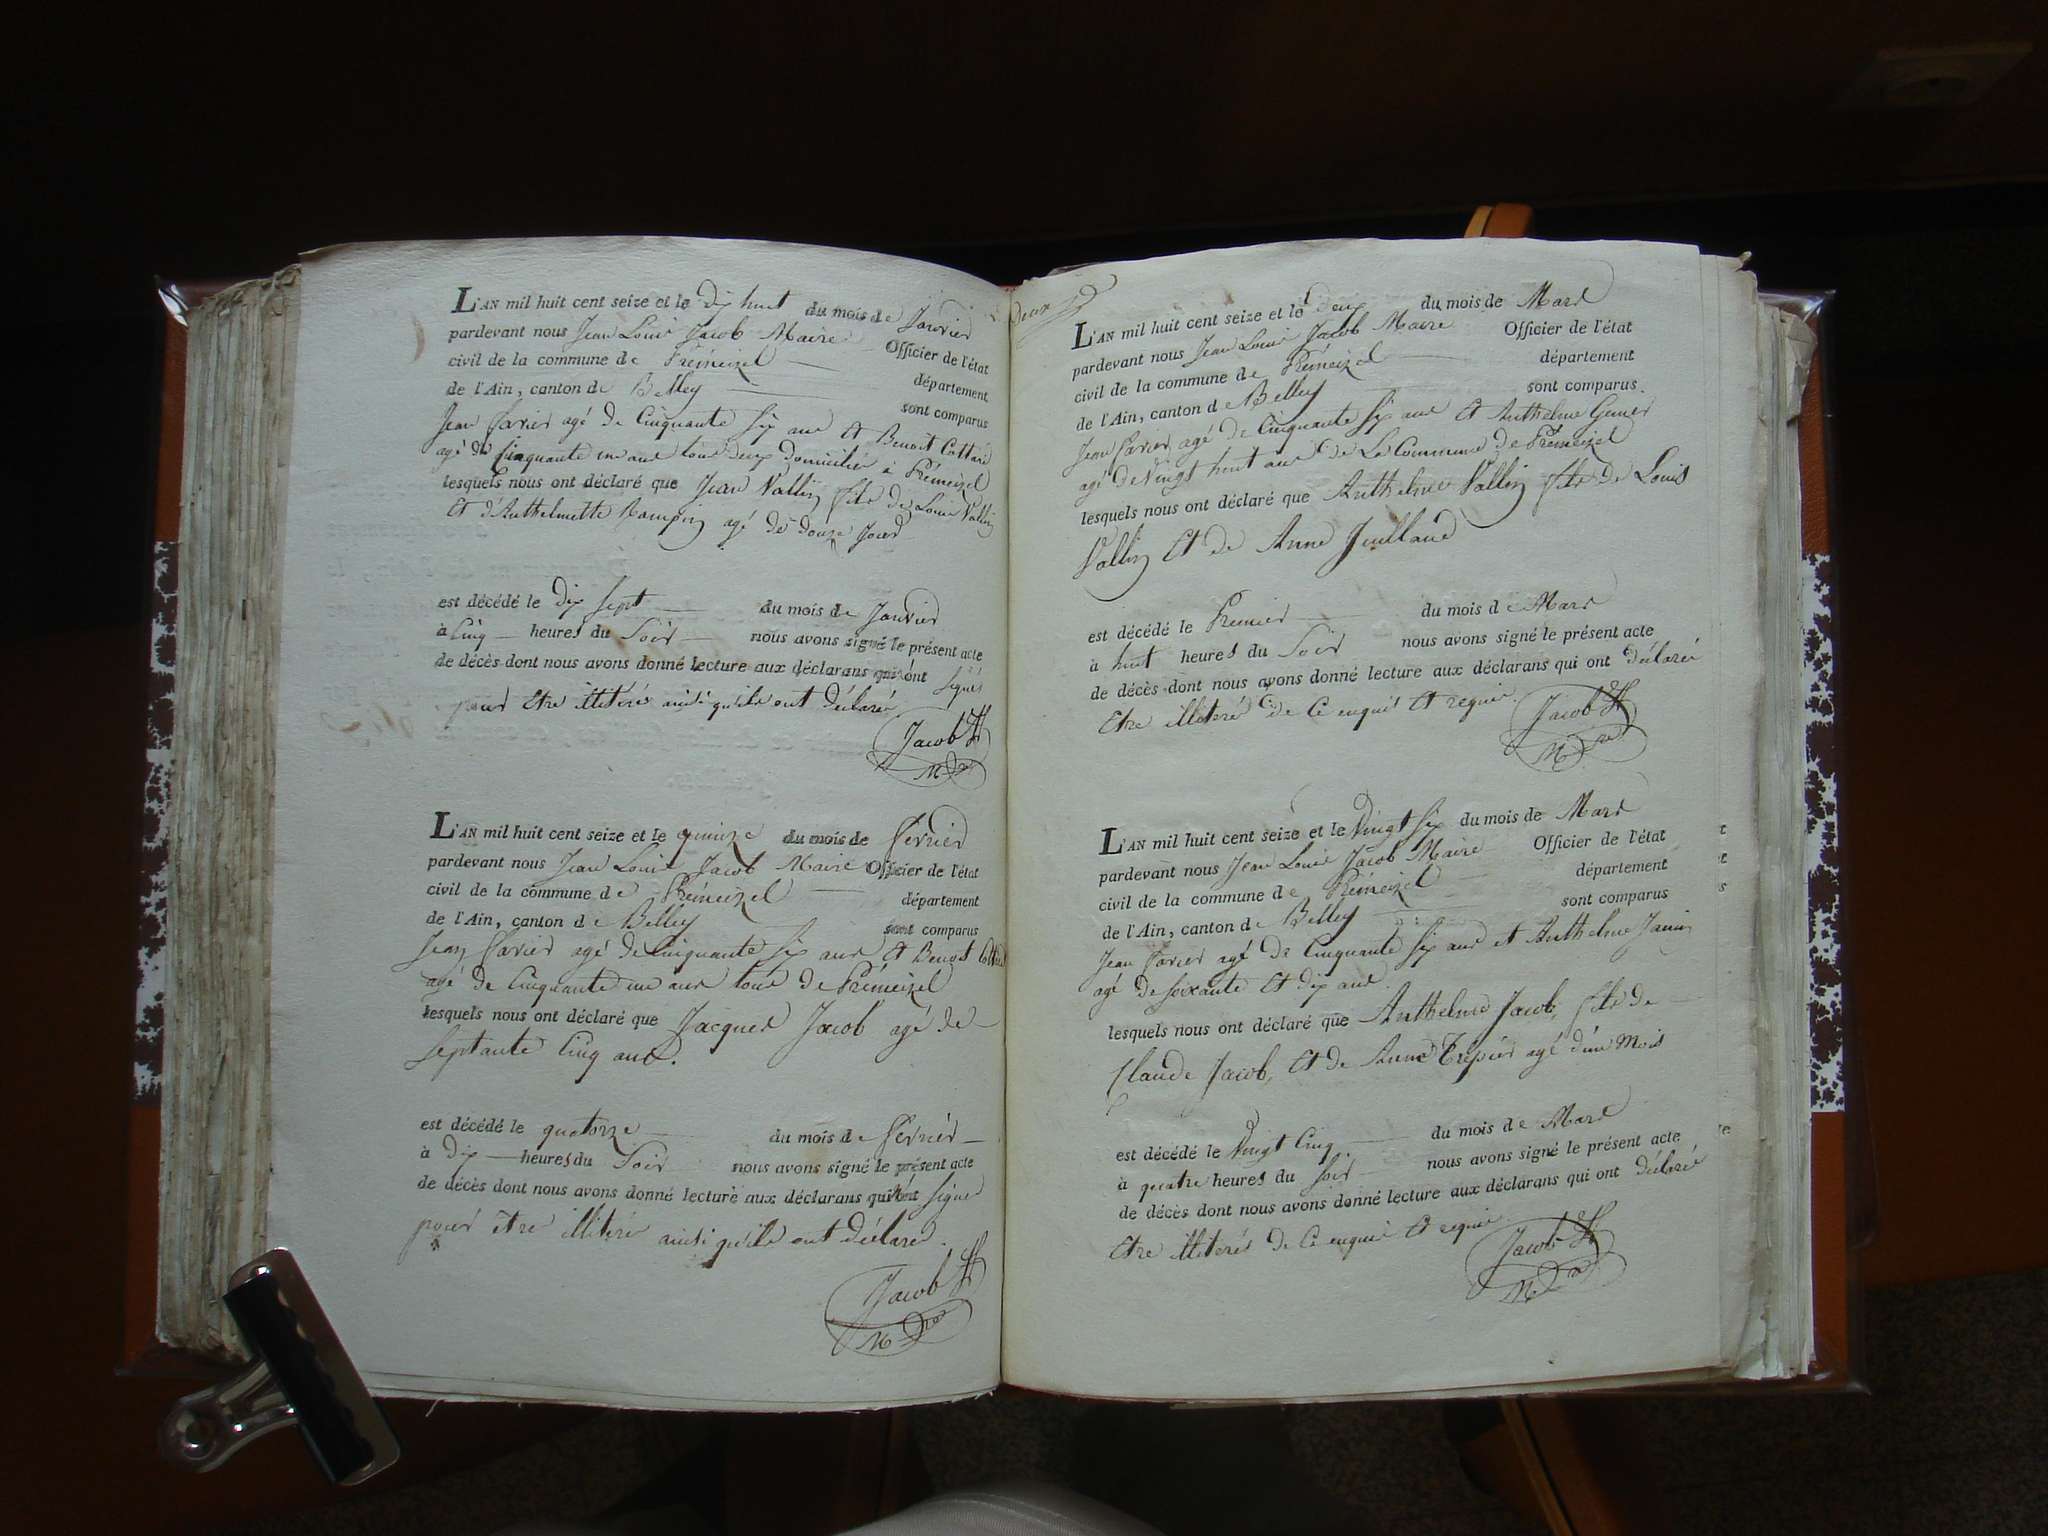 L'AN mil huit cent seize et le dix huit du mois de Janvier
pardevant nous Jean Louis Jacob Maire Officier de l'état
civil de la commune de Prémeizel département
de l'Ain, canton de Belley sont comparus
Jean Favier agé de Cinquante Six ans et Benoit Cottare
agé de Cinquante un ans tous deux domiciliés à Prémeizel
lesquels nous ont déclaré que Jean Vallin fils de Louis Vallin
Et d'Anthelmette agé de douze Jours
est décédé le dix Sept du mois de Janvier
à Cinq heures du Soir nous avons signé le présent acte
de décès dont nous avons donné lecture aux déclarans qui ont Signé
pour Etre illiteré ainsi qu'ils ont déclaré
Jacob
M
L'AN mil huit cent seize et le quinze du mois de Fevrier
pardevant nous Jean Louis Jacob Maire Officier de l'état
civil de la commune de Prémeizel département
de l'Ain, canton de Belley sont comparus
Jean Favier agé de Cinquante Six ans et Benoit
agé de Cinquante un ans tous de Prémeizel
lesquels nous ont déclaré que Jacques Jacob agé de
Septante Cinq ans.
est décédé le quatorze du mois de Fevrier
à Dix heures du Soir nous avons signé le présent acte
de décès dont nous avons donné lecture aux déclarans qui ont Signer
pour être illiteré ainsi qu'ils ont déclaré.
Jacob
M
deux
L'AN mil huit cent seize et le Deux du mois de Mars
pardevant nous Jean Louis Jacob Maire Officier de l'état
civil de la commune de Prémeizel département
de l'Ain, canton de Belley sont comparus
Jean Favier agé de Cinquante Six ans Et Anthelme
agé de Vingt huit ans de La Commune de Prémeizel
lesquels nous ont déclaré que Anthelme Vallin fils de Louis
Vallin Et de Anne Juilland
est décédé le Premier du mois de Mars
à huit heures du Soir nous avons signé le présent acte
de décès dont nous avons donné lecture aux déclarans qui ont déclaré
Etre illiteré de Ce enquis Et requis
Jacob
M
L'AN mil huit cent seize et le Vingt Six du mois de Mars
pardevant nous Jean Louis Jacob Maire Officier de l'état
civil de la commune de Prémeizel département
de l'Ain, canton de Belley sont comparus
Jean Favier agé de Cinquante Six ans et Anthelme Janin
agé de Soixante Et dix ans
lesquels nous ont déclaré que Anthelme Jacob, fils de
Claude Jacob, Et de Anne Trepier agé d'un Mois
est décédé le Vingt Cinq. du mois de Mars
à quatre heures du Soir nous avons signé le présent acte
de décès dont nous avons donné lecture aux déclarans qui ont déclaré
Etre illiterés de Ce enquis Et requis
Jacob
M